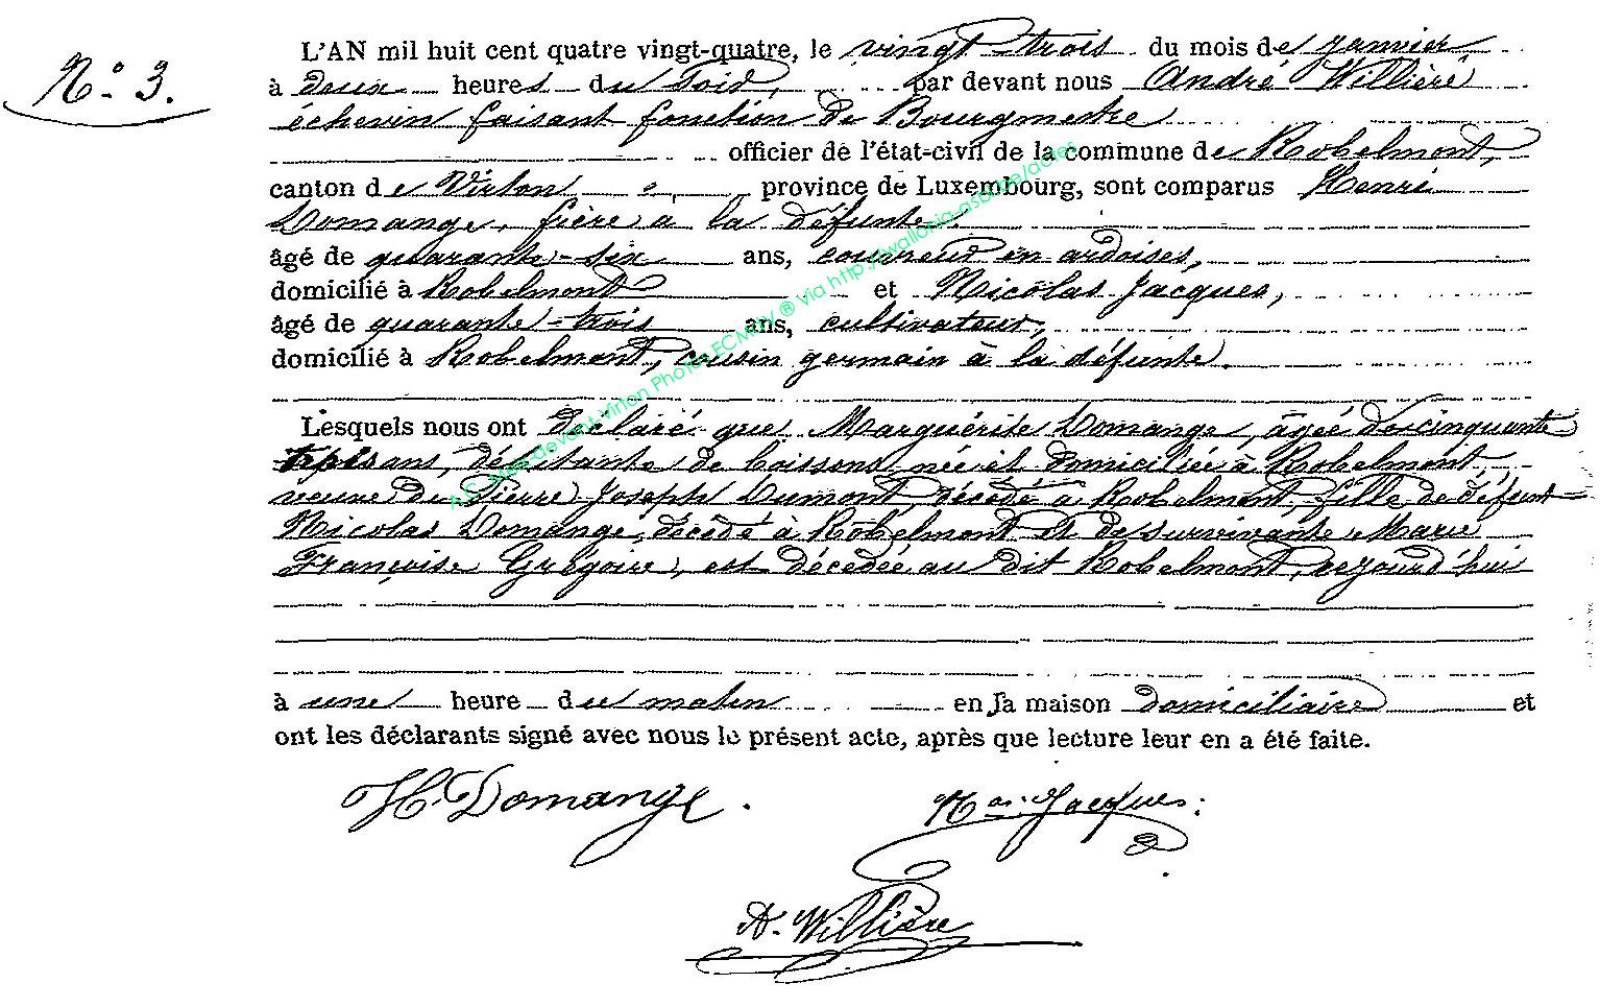 N.° 3.
L'AN mil huit cent quatre vingt-quatre, le vingt-trois du mois de janvier
à deux heures du soir, par devant nous André Willière
échevin faisant fonction de Bourgmestre
officier de l'état-civil de la commune de Robelmont,
canton de Virton, province de Luxembourg, sont comparus Henri
Domange, frère à la défunte,
âgé de quarante-six ans, couvreur en ardoises,
domicilié à Robelmont et Nicolas Jacques,
âgé de quarante-trois ans, cultivateur,
domicilié à Robelmont, cousin germain à la défunte.
Lesquels nous ont déclaré que Marguérite Domange, âgée de cinquante
trois ans, débitante de boissons née et domiciliée à Robelmont,
veuve de Pierre Joseph Dumont, décédé à Robelmont, fille de défunt
Nicolas Domange, décédé à Robelmont et de survivante Marie
Françoise Grégoire, est décédée au dit Robelmont, cejourd'hui
à une heure du matin en la maison domiciliaire et
ont les déclarants signé avec nous le présent acte, après que lecture leur en a été faite.
H. Domange. Nas. Jacques.
A. Willière